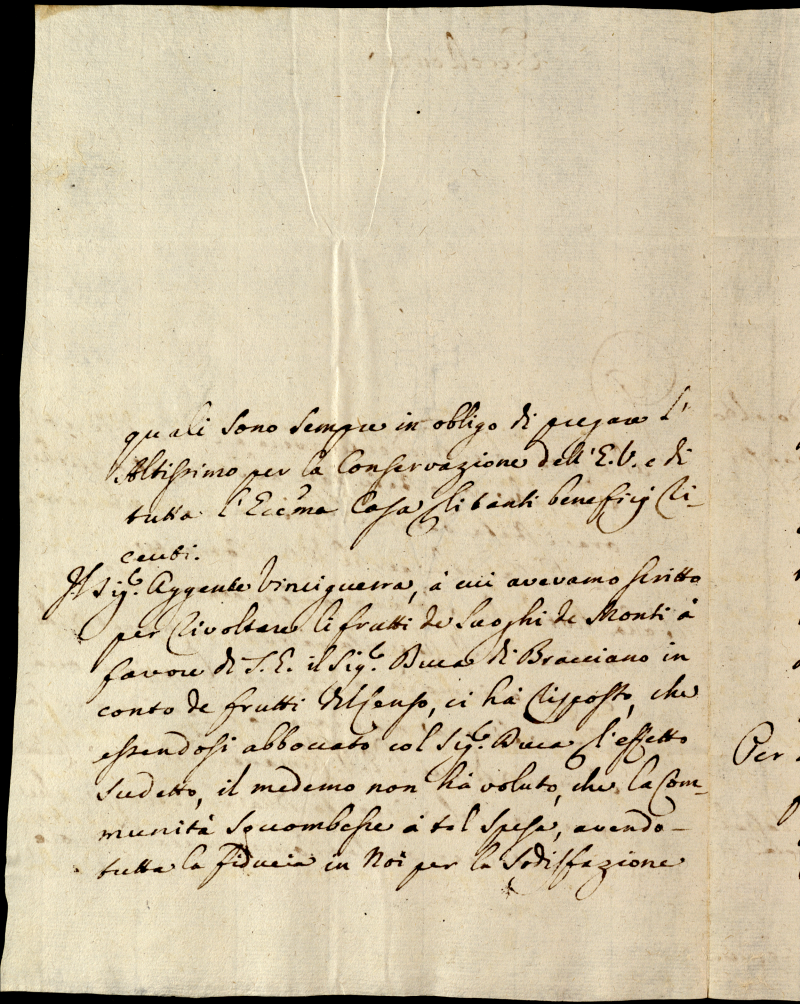 quali sono sempre in obligo di pregare l'
Altissimo per la Conservazione dell'E.V. e di
tutta l'Ecc.ma Casa p li tanti beneficij ri-
ceuti.
Il Sig.r Aggente Vinciguerra, à cui avevamo scritto
per rivoltare li frutti de Luoghi de Monti à
favore di S.E. il Sig.r Duca di Bracciano in
conto de frutti del Censo, ci hà risposto, che
essendosi abboccato col Sig.r Duca p l'effetto
sudetto, il medemo non hà voluto, che la Com-
munità soccombesse à tal spesa, avendo-
tutta la fiducia in Noi per la Sodisfazione
Per